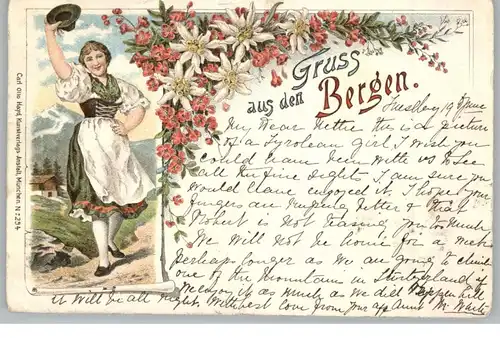 Gruss
aus den Bergen.
Carl Otto Hayd, Kunstverlags-Anstalt, München. No 7254
Tuesday 19 June
My Dear Nettie this is a picture
of a Tyrolean girl I wish you
could have been with us to see
all the fine sights I am sure you
would have enjoyed it I hope your
fingers are better & that
Robert is not teasing you too much
We will not be home for a week
perhaps longer as we are going to climb
one of the Mountains in Switzerland if
we enjoy it as much as we did
it will be all right. With best love from your Aunt M.